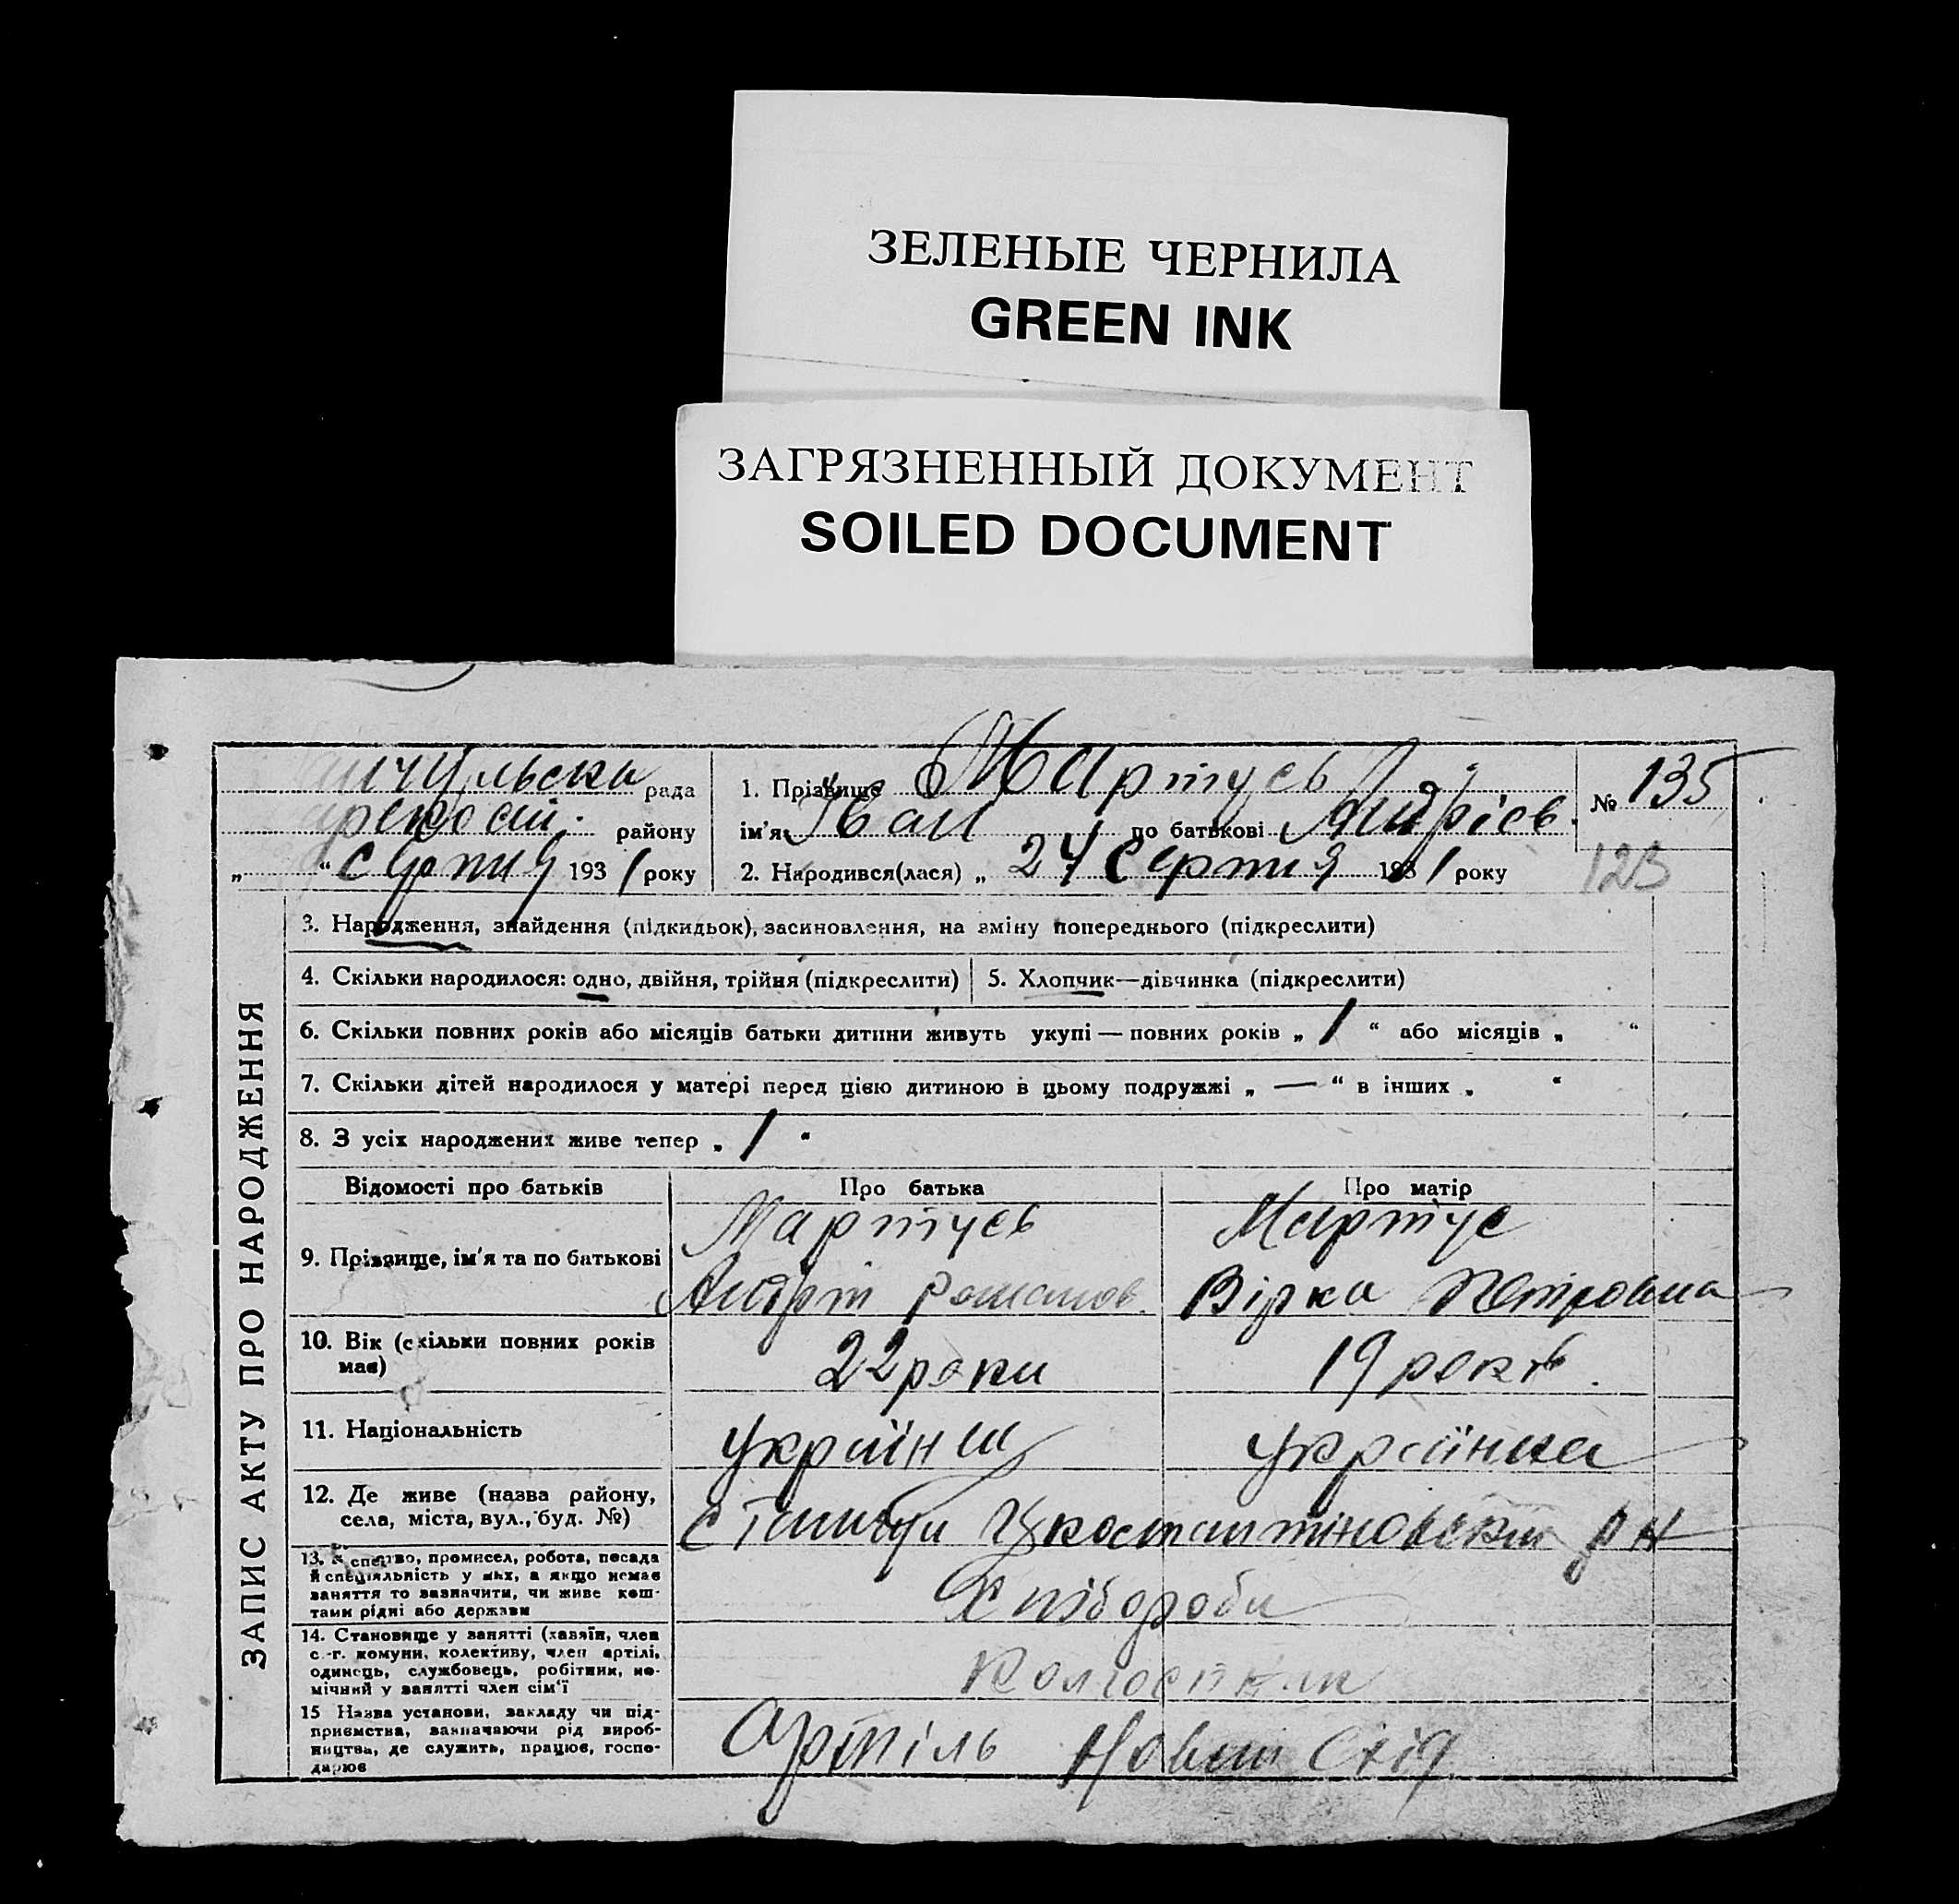 ЗЕЛЕНЫЕ ЧЕРНИЛА
GREEN INK
ЗАГРЯЗНЕННЫЙ ДОКУМЕНТ
SOILED DOCUMENT
ЗАПИС АКТУ ПРО НАРОДЖЕННЯ
рада
району
„ “ Серпня 1931 року
1. Прізвище Мартусь
ім'я Іван по батькові Андрієв.
2. Народився(лася) „ 24 Серпня 1931 року
№ 135
123
3. Народження, знайдення (підкидьок), засиновлення, на зміну попереднього (підкреслити)
4. Скільки народилося: одно, двійня, трійня (підкреслити)
5. Хлопчик—дівчинка (підкреслити)
6. Скільки повних років або місяців батьки дитини живуть укупі — повних років „ 1 “ або місяців „ “
7. Скільки дітей народилося у матері перед цією дитиною в цьому подружжі „ — “ в інших „ “
8. З усіх народжених живе тепер „ 1 “
Відомості про батьків Про батька Про матір
9. Прізвище, ім'я та по батькові
Мартусь
Андрій Романов.
Мартусь
Вірка Петровна
10. Вік (скільки повних років
має)
22 роки
19 років.
11. Національність
українці
українка
12. Де живе (назва району,
села, міста, вул., буд. №)
р н
13. Мистецтво, промисел, робота, посада
й спеціяльність у них, а якщо немає
заняття то зазначити, чи живе кош-
тами рідні або держави
Хліборобы
14. Становище у занятті (хазяїн, член
с.-г. комуни, колективу, член артілі,
одинець, службовець, робітник, по-
мічний у занятті член сім'ї
Колгоспник
15 Назва установи, закладу чи під-
приємства, зазначаючи рід вироб-
ництва, де служить, працює, госпо-
дарює
Артіль Новий Схід